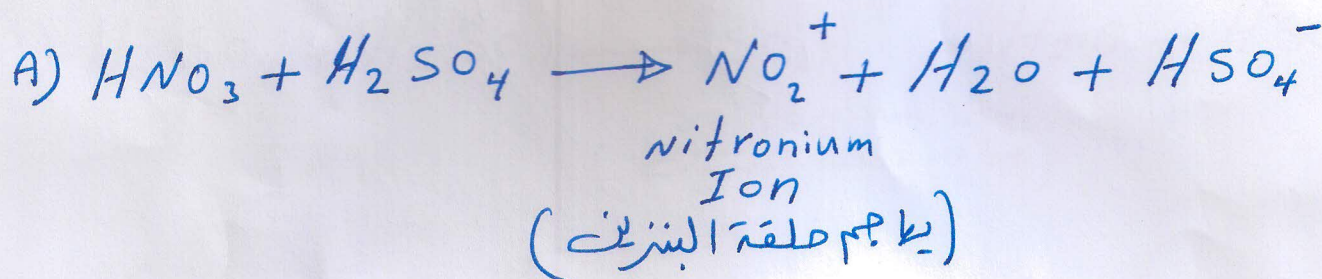 A) HNO₃ + H₂SO₄ → NO₂⁺ + H₂O + HSO₄⁻
Nitronium
Ion
(يهاجم حلقة البنزين)